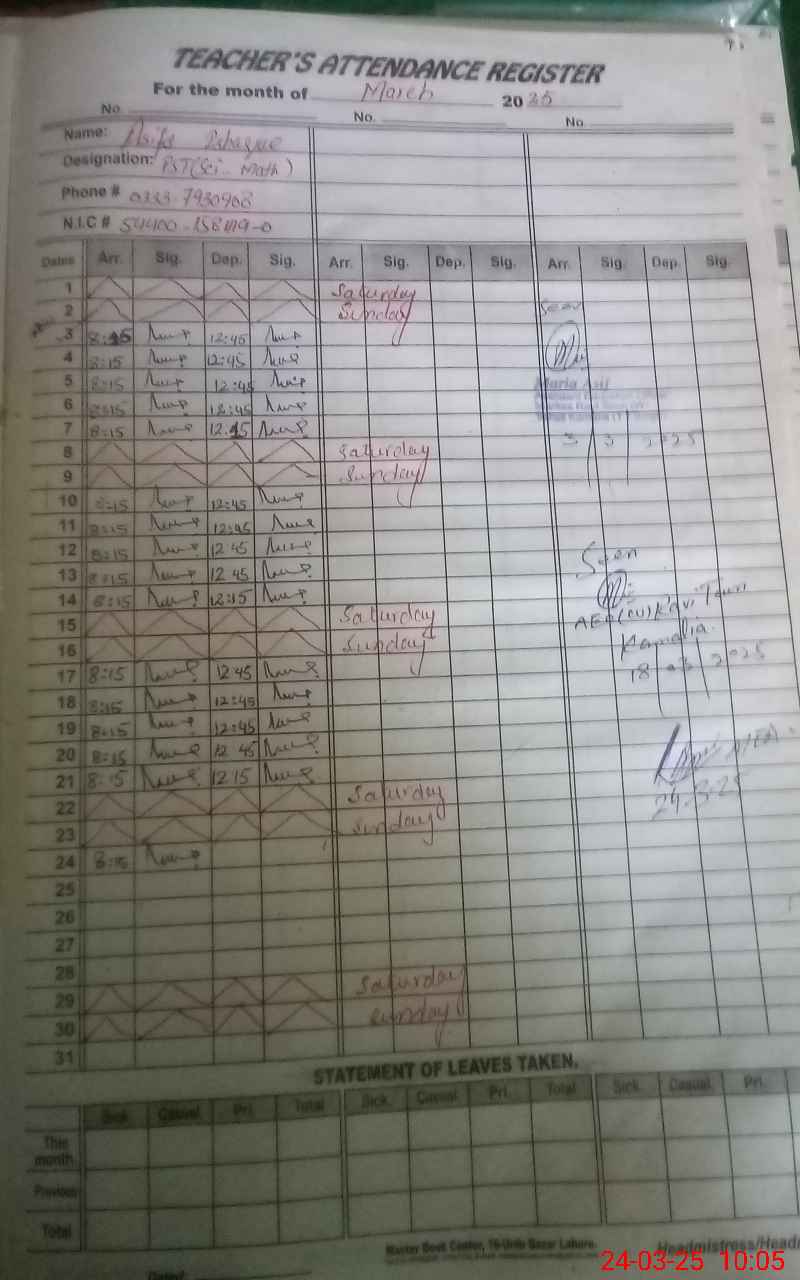 TEACHER'S ATTENDANCE REGISTER
For the month of March 2025
No. No. No.
Name: Asifa Ishaque
Designation: PST(Sci-Math)
Phone # 0333-7930908
N.I.C #
Dates Arr. Sig. Dep. Sig. Arr. Sig. Dep. Sig. Arr. Sig. Dep. Sig.
1 Saturday
2 Sunday Seen
3 8:15 12:45
4 8:15 12:45
5 8:15 12:45 Maria Asif
6 8:15 12:45
7 8:15 12:45 3/3/2025
8 Saturday
9 Sunday
10 8:15 12:45
11 8:15 12:45
12 8:15 12 45 Seen
13 8:15 12 45
14 8:15 12:15 AEO
15 Saturday Kamalia
16 Sunday 18 03 2025
17 8:15 12 45
18 8:15 12:45
19 8:15 12:45
20 8:15 12 45
21 8:15 12 15 24-3-25
22 Saturday
23 Sunday
24 8:15
25
26
27
28
29 Saturday
30 Sunday
31
STATEMENT OF LEAVES TAKEN.
Sick Casual Pri. Total Sick. Casual Pri. Total Sick. Casual Pri.
This month
Previous
Total
Master Book Center, 16-Urdu Bazar Lahore.
Headmistress/Head
Dated:
24-03-25 10:05